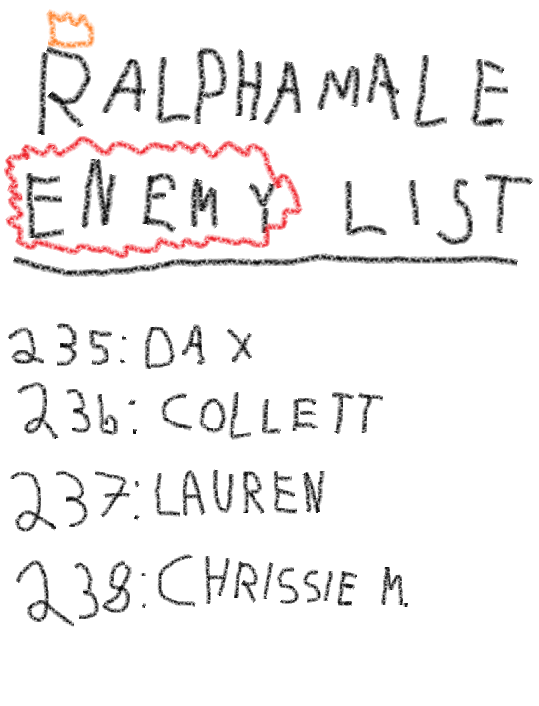 RALPHAMALE
ENEMY LIST
235: DAX
236: COLLETT
237: LAUREN
238: CHRISSIE M.